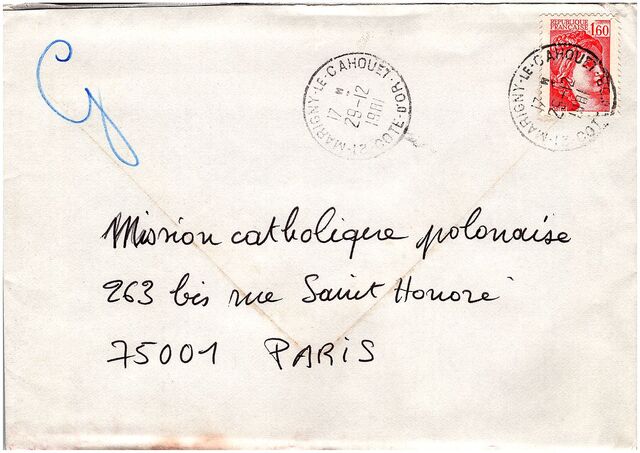 RÉPUBLIQUE
FRANÇAISE 1,60
21-MARIGNY-LE-CAHOUET-CÔTE D'OR
17 H
29-12
1981
21-MARIGNY-LE-CAHOUET
17 H
29-12
1981
Mission catholique polonaise
263 bis rue Saint Honoré
75001 PARIS